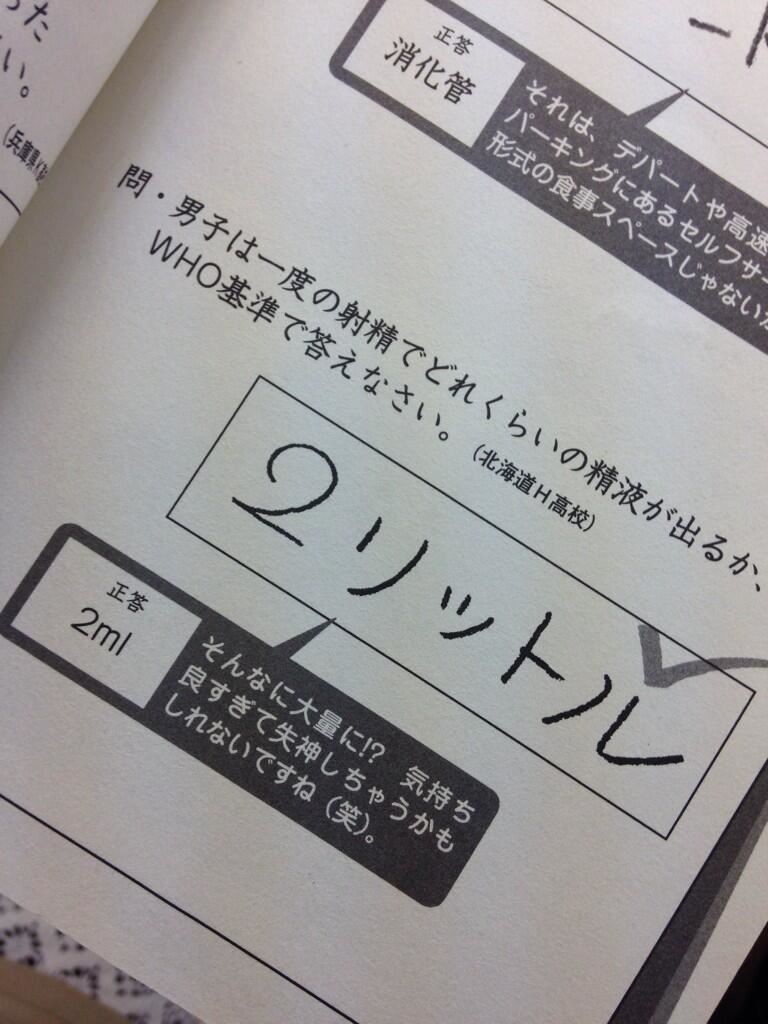 った
い。
(兵庫県
正答
消化管
それは、デパートや高速
パーキングにあるセルフサー
形式の食事スペースじゃないか
問・男子は一度の射精でどれくらいの精液が出るか、
WHO基準で答えなさい。
(北海道H高校)
2リットル
正答
2ml
そんなに大量に!? 気持ち
良すぎて失神しちゃうかも
しれないですね(笑)。